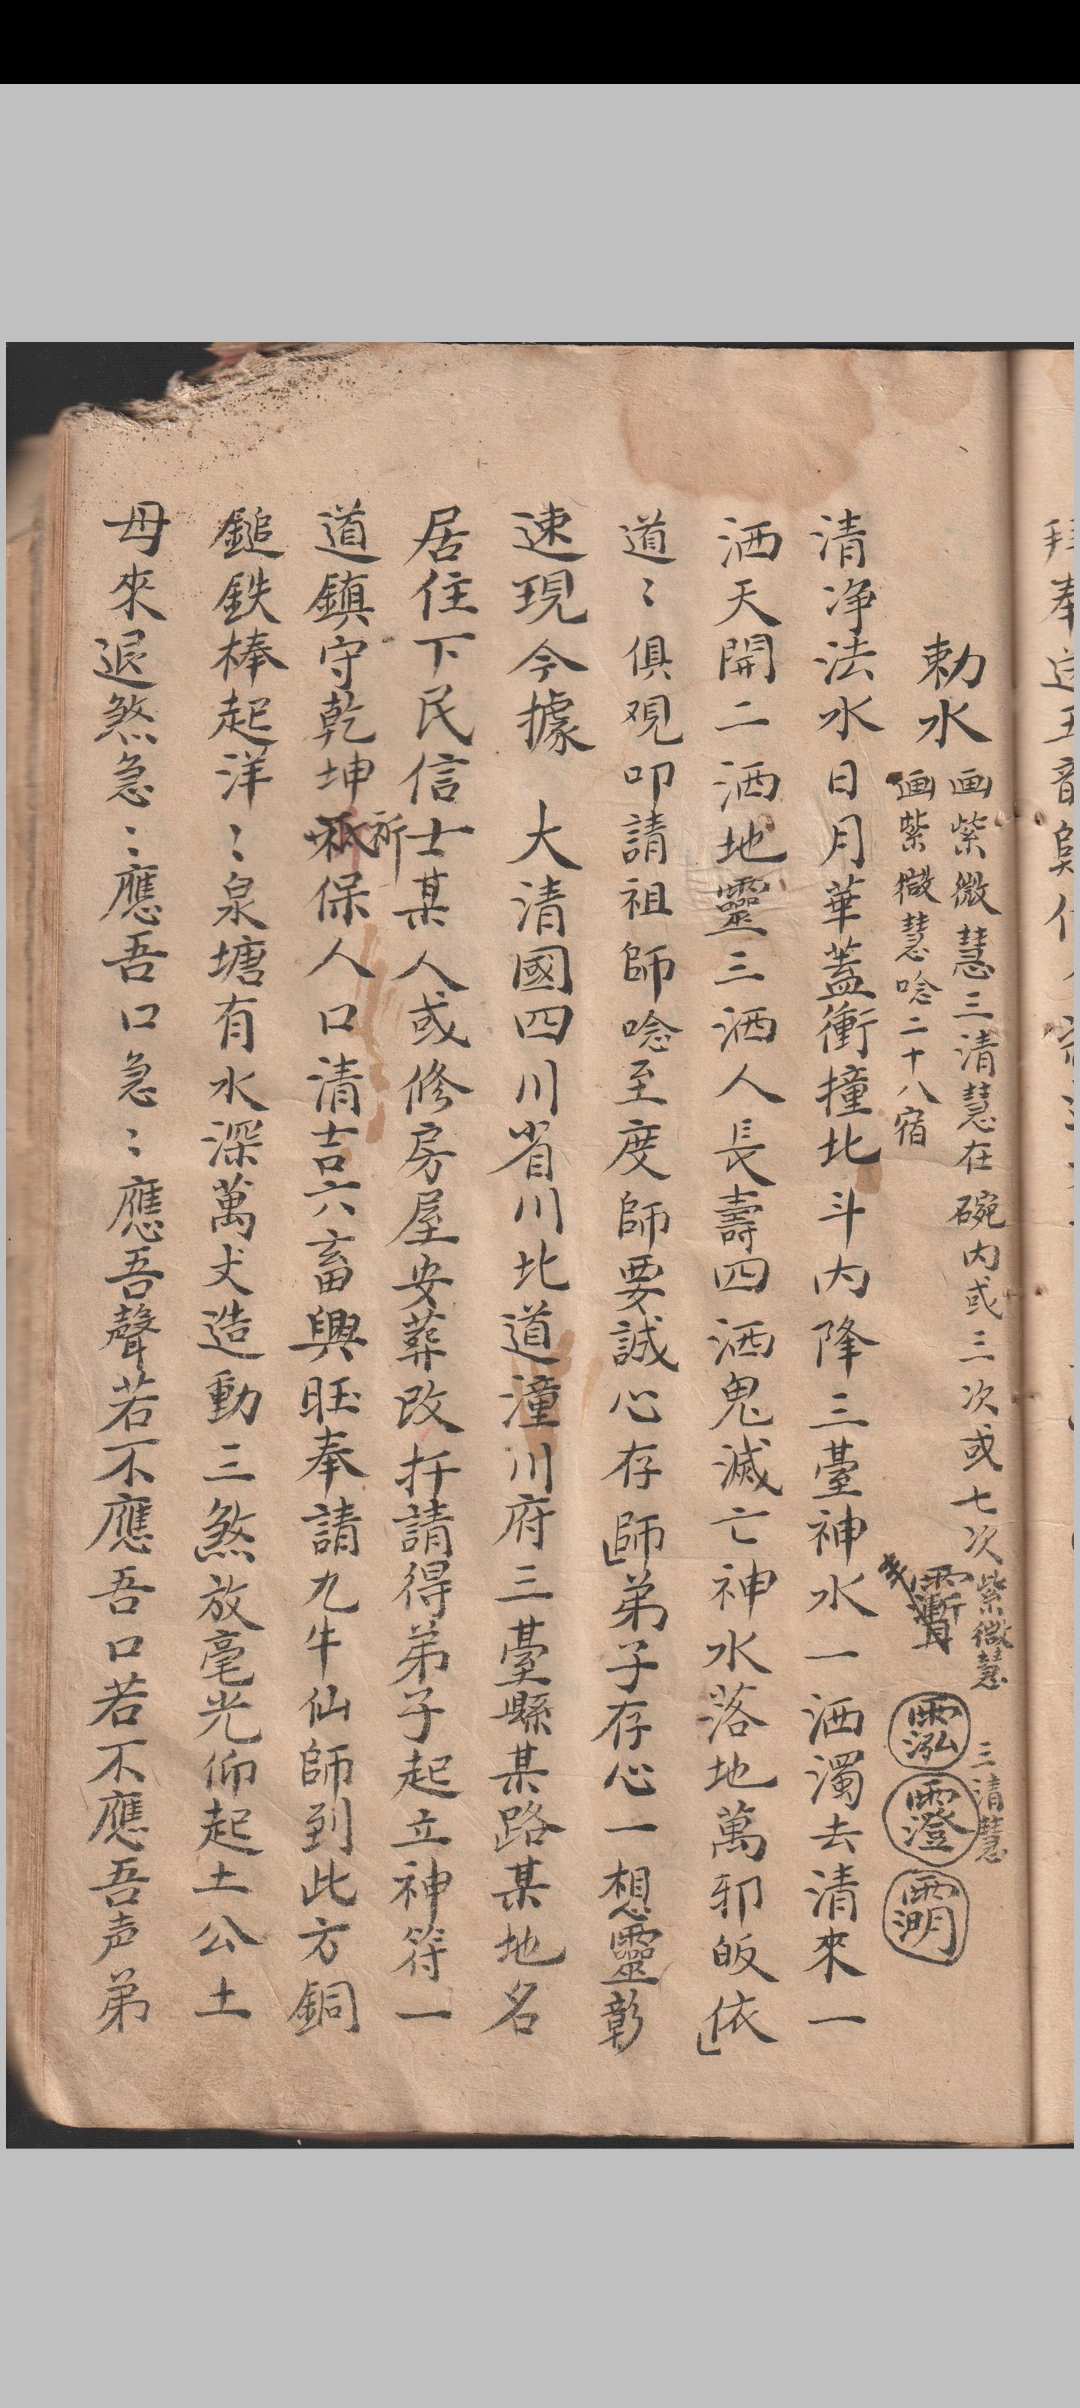 勅水
画紫微慧三清慧在碗内或三次或七次
画紫微慧唸二十八宿
紫微慧
三清慧
清净法水日月華蓋衝撞北斗内降三臺神水一洒濁去清來一
洒天開二洒地靈三洒人長壽四洒鬼滅亡神水落地萬邪皈依
道〻俱观叩請祖師唸至度師要誠心存師弟子存心一想靈彰
速現今據 大清國四川省川北道潼川府三臺縣某路某地名
居住下民信士某人或修房屋安葬改扦請得弟子起立神符一
道鎮守乾坤祈保人口清吉六畜興旺奉請九牛仙師到此方銅
鎚鉄棒起洋〻泉塘有水深萬丈造動三煞放毫光仰起土公土
母來退煞急〻應吾口急〻應吾聲若不應吾口若不應吾声弟